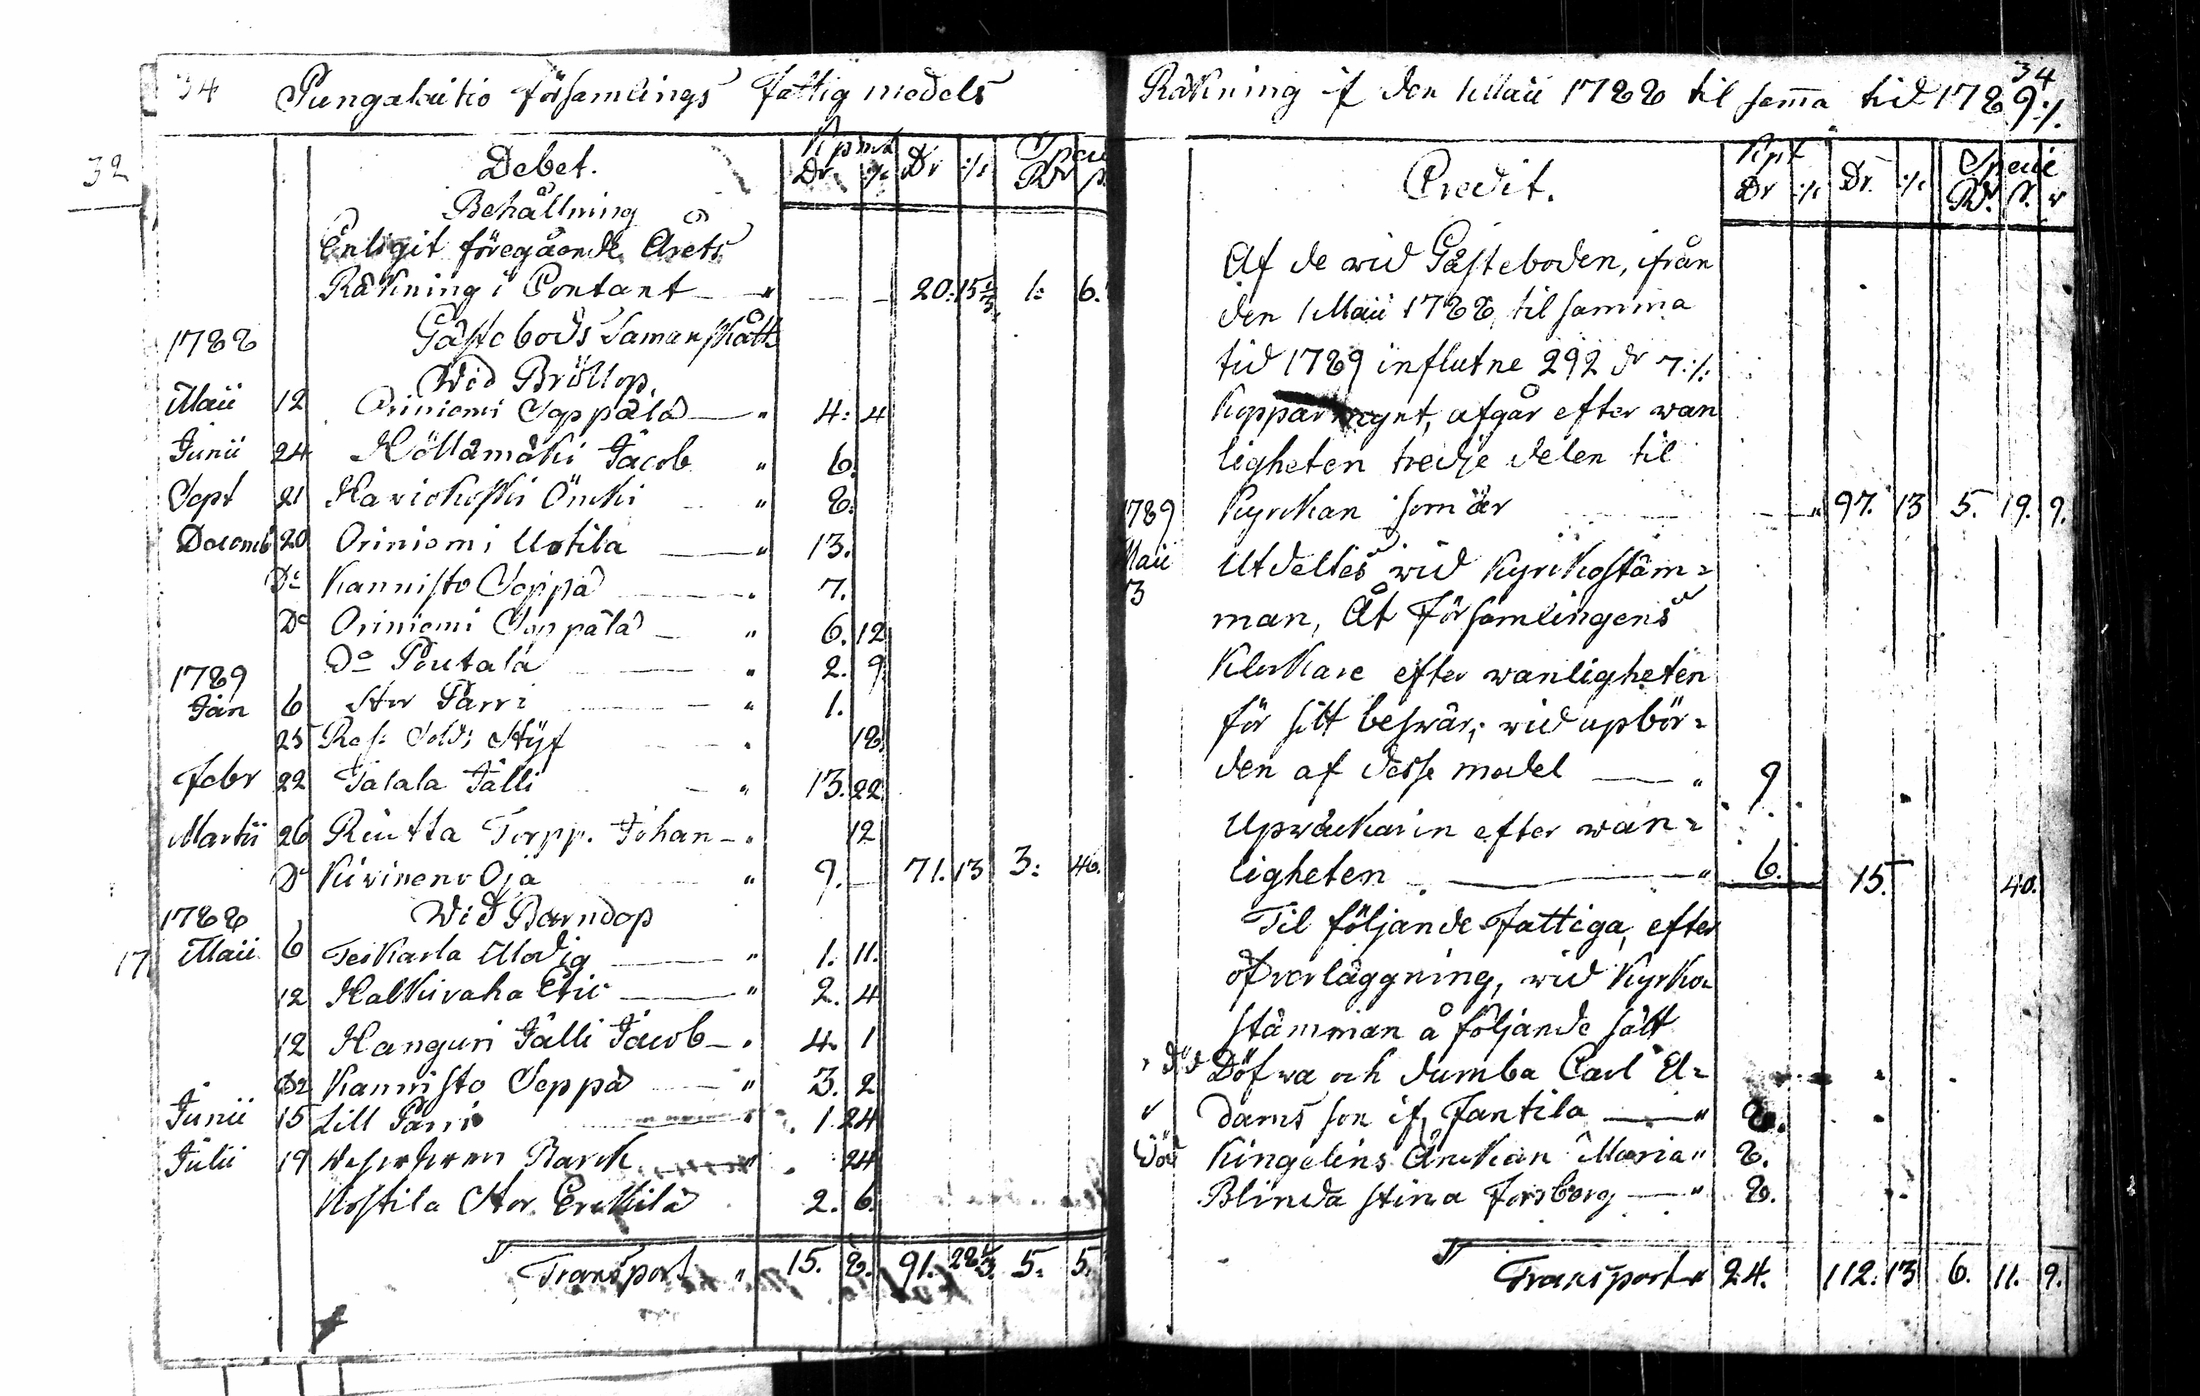 34 Pungalaitio församlings fattig medels
32
Debet. Kpmt Dr :/: Dr :/: Specie Rdr s.
Behållning
Enligit föregående Årets
Räkning i Contant — " — — 20: 15 1/3. 1: 6.
1788 Gästebods Samanskått
Wid Bröllop.
Maii 12 Oriniemi Seppälä — " 4: 4
Junii 24 Höllämäki Jacob " 6.
Sept 21 Haviokoski " 8.
Decemb 20 Oriniemi Uotila — " 13.
Do Kannisto Seppä — " 7.
Do Oriniemi Seppälä — " 6. 12
Do Pentala — " 2. 9.
1789
Jan 6 Stor Parri — " 1.
25 Res: Sold: Styf " 18.
Febr 22 Talala Jälli — " 13. 22
Martii 26 Riutta Torpp. Johan — " 12
Do Kivinen Oja " 9. — 71. 13 3: 46.
1788 Wid Barndop
17. Maii 6 Teikarla Modig — " 1. 11.
12 Halkivaha Eric — " 2. 4
12 Hanguri Jälli Jacob — " 4. 1
Do Kannisto Seppä — " 3. 2
Junii 15 Lill Parri " 1. 24
Julii 19 Barck " 24
Kostila Stor Erckilä 2. 6.
Transport " 15. 8. 91. 28 1/3. 5: 5.
34
Räkning if den 1 Maii 1788 til sama tid 1789 :/.
Credit. Kpt Dr :/: Dr. :/: Specie Rdr. s. r
Af de wid Gästeboden, ifrån
den 1 Maii 1788, til samma
tid 1789 influtne 292 dr 7:/:
Kopparmynt, afgår efter wan
ligheten tredje delen til
1789 Kyrckan som är — " 97. 13 5. 19. 9.
Maii Utdeltes wid Kyrckostäm=
3 man, Åt Församlingens
Klockare efter wanligheten
för sitt beswär, wid upbör=
den af desse medel — " 9.
Upwäckarin efter wan=
ligheten — " 6. 15. — 40.
Til följande Fattiga, efter
öfverläggning, wid Kyrko=
stämman å följande sätt
död Döfwa och dumba Carl A=
dams son if Fantila — " 8.
död Kingelins Änckan Maria " 8.
Blinda Stina Forsberg — " 8.
Transport " 24. 112. 13 6. 11. 9.